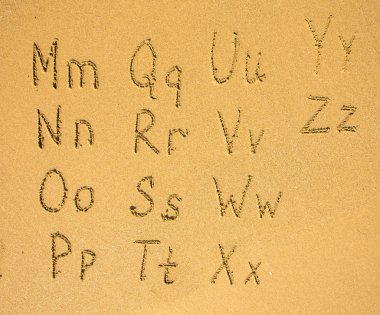 Mm
Nn
Oo
Pp
Qq
Rr
Ss
Tt
Uu
Vv
Ww
Xx
Yy
Zz